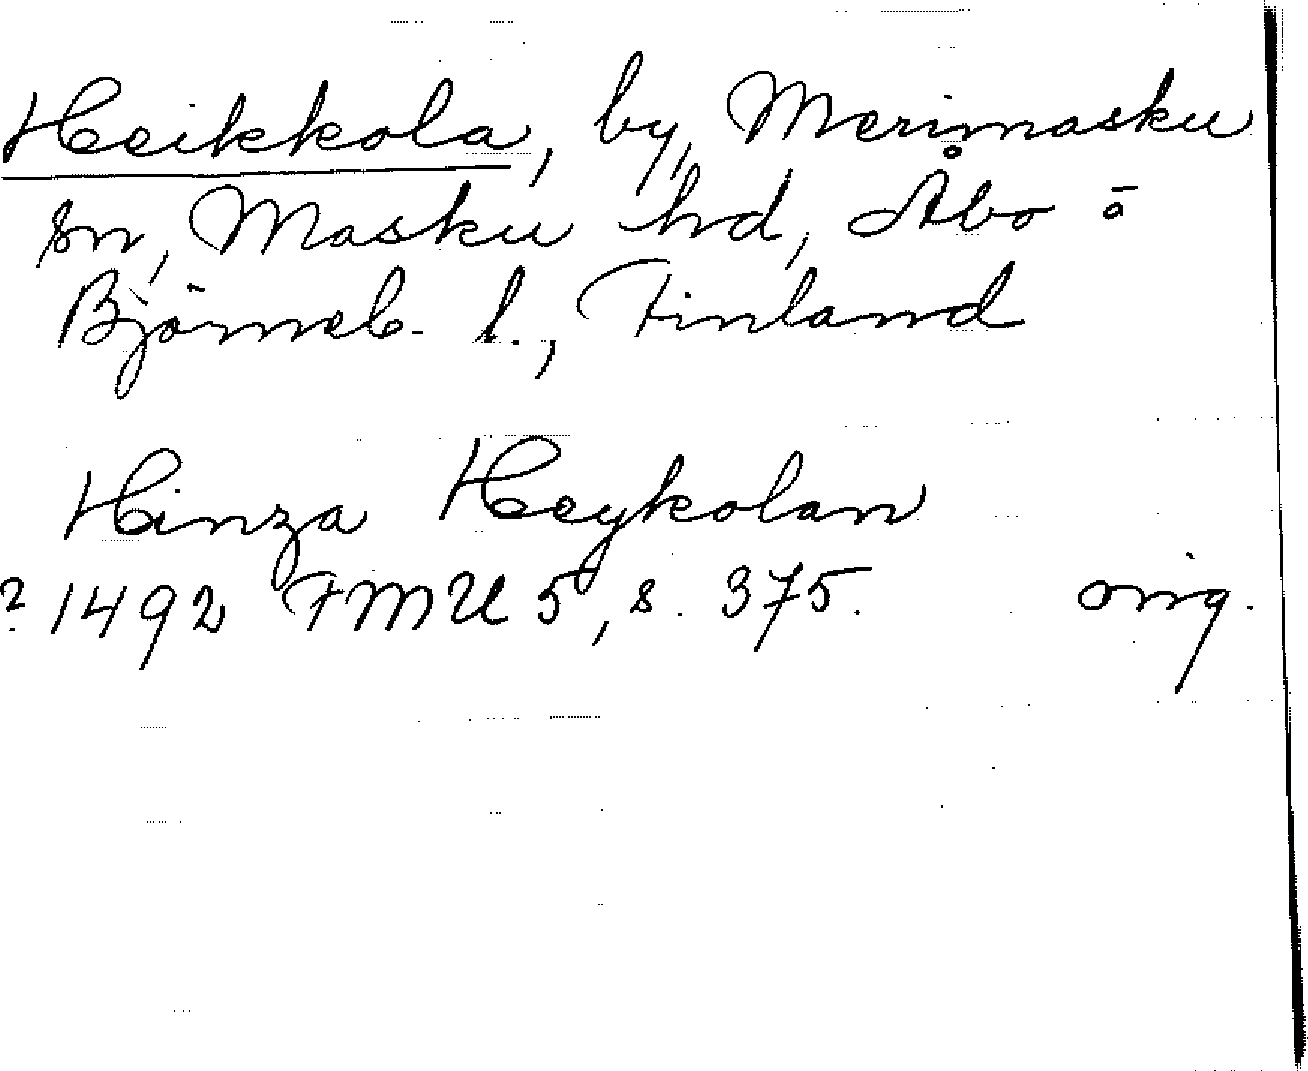 Heikkola, by, Merimasku
sn, Masku hd, Åbo o
Björneb. l., Finland
Hinza Heykolan
? 1492 FMU 5, s. 375. orig.